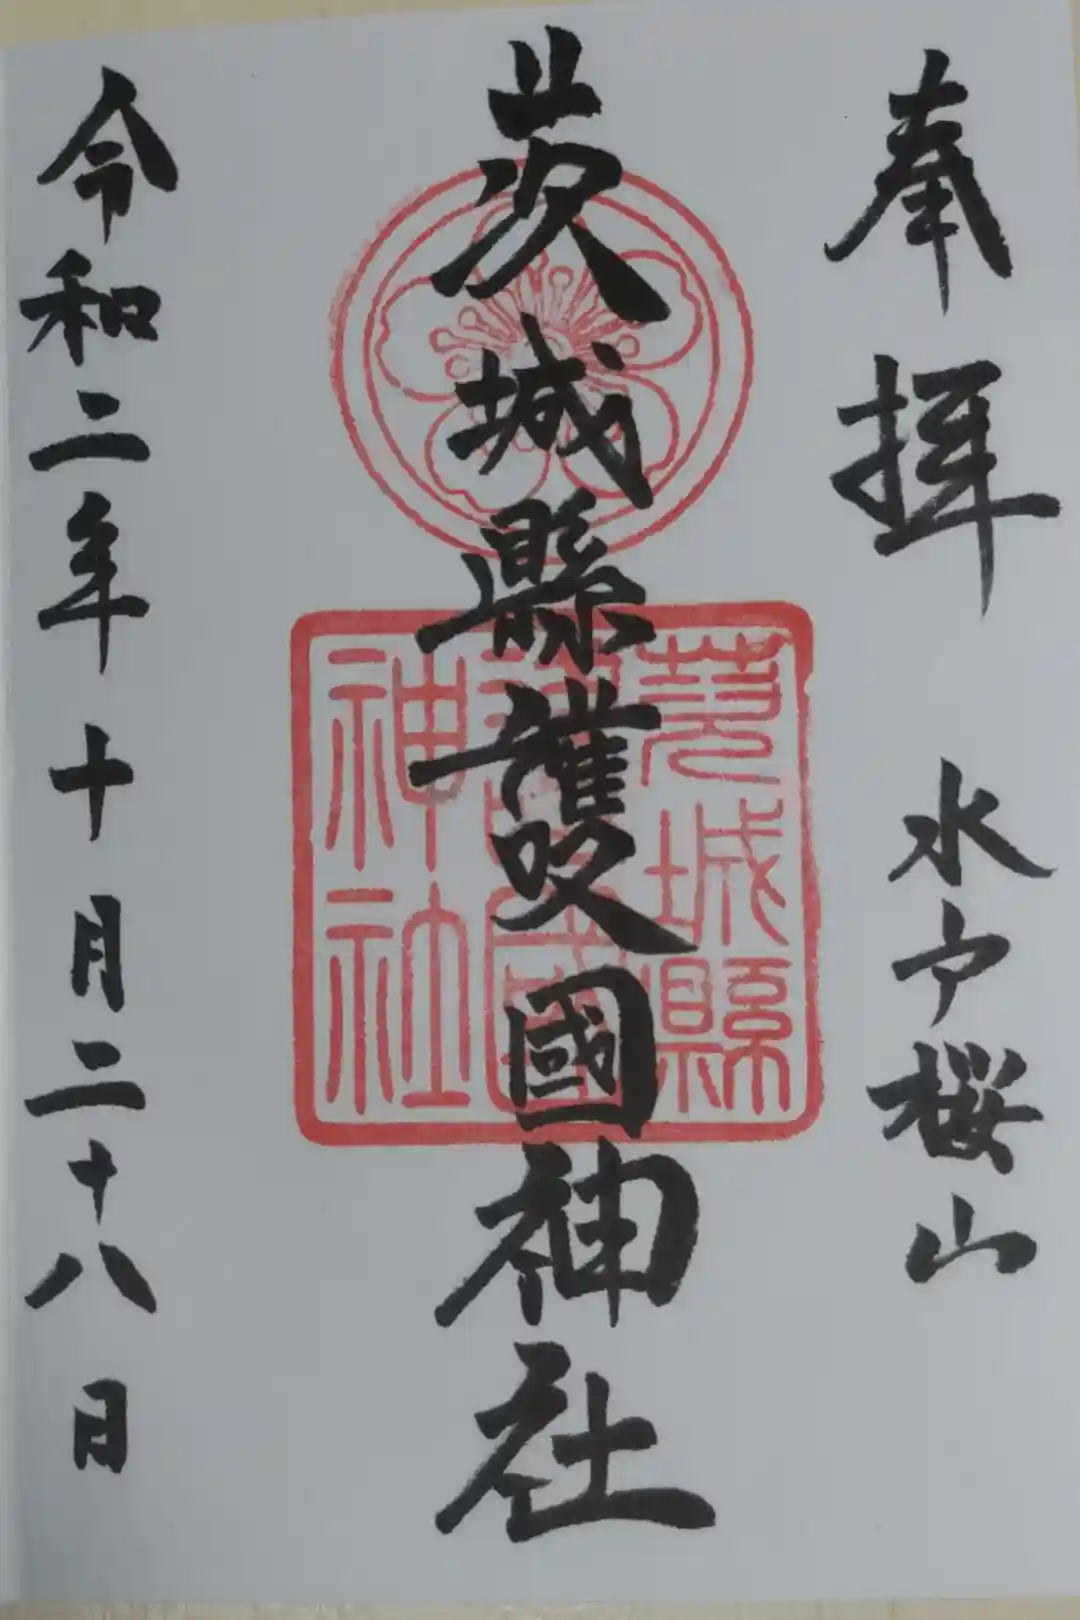 奉拝 水戸桜山
茨城縣護國神社
茨城縣
護國
神社
令和二年十月二十八日